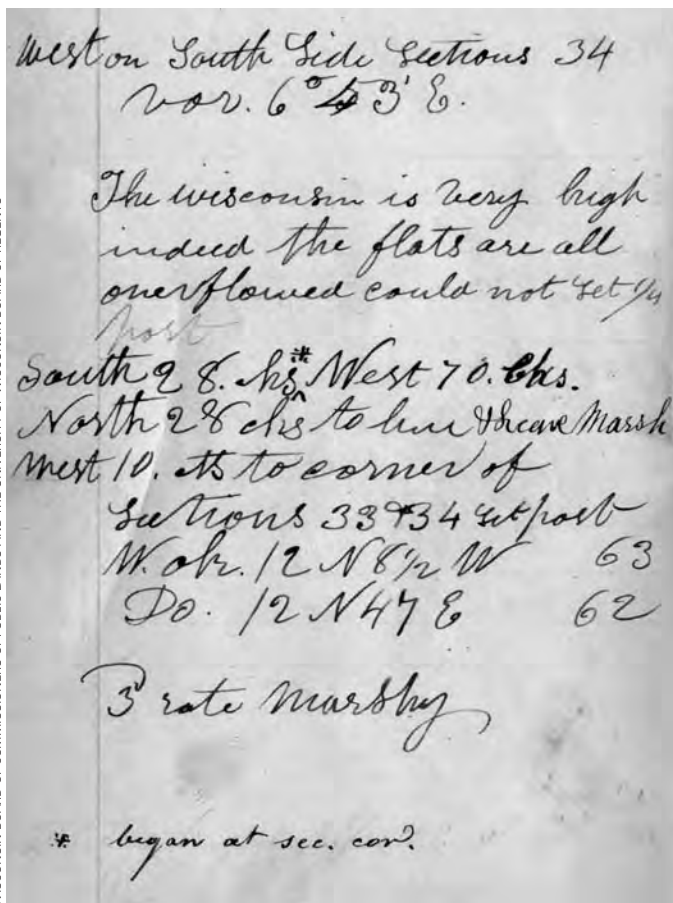 West on South Side Sections 34
var. 6° 53' E.
The wisconsin is very high
indeed the flats are all
overflowed could not set 1/4
post
South 28. chs * West 70. Chs.
North 28 chs to line & leave Marsh
West 10. chs to corner of
Sections 33 & 34 set post
W. ok. 12 N 8 1/2 W 63
Do. 12 N 47 E 62
3 rate Marshy
* began at sec. cor.